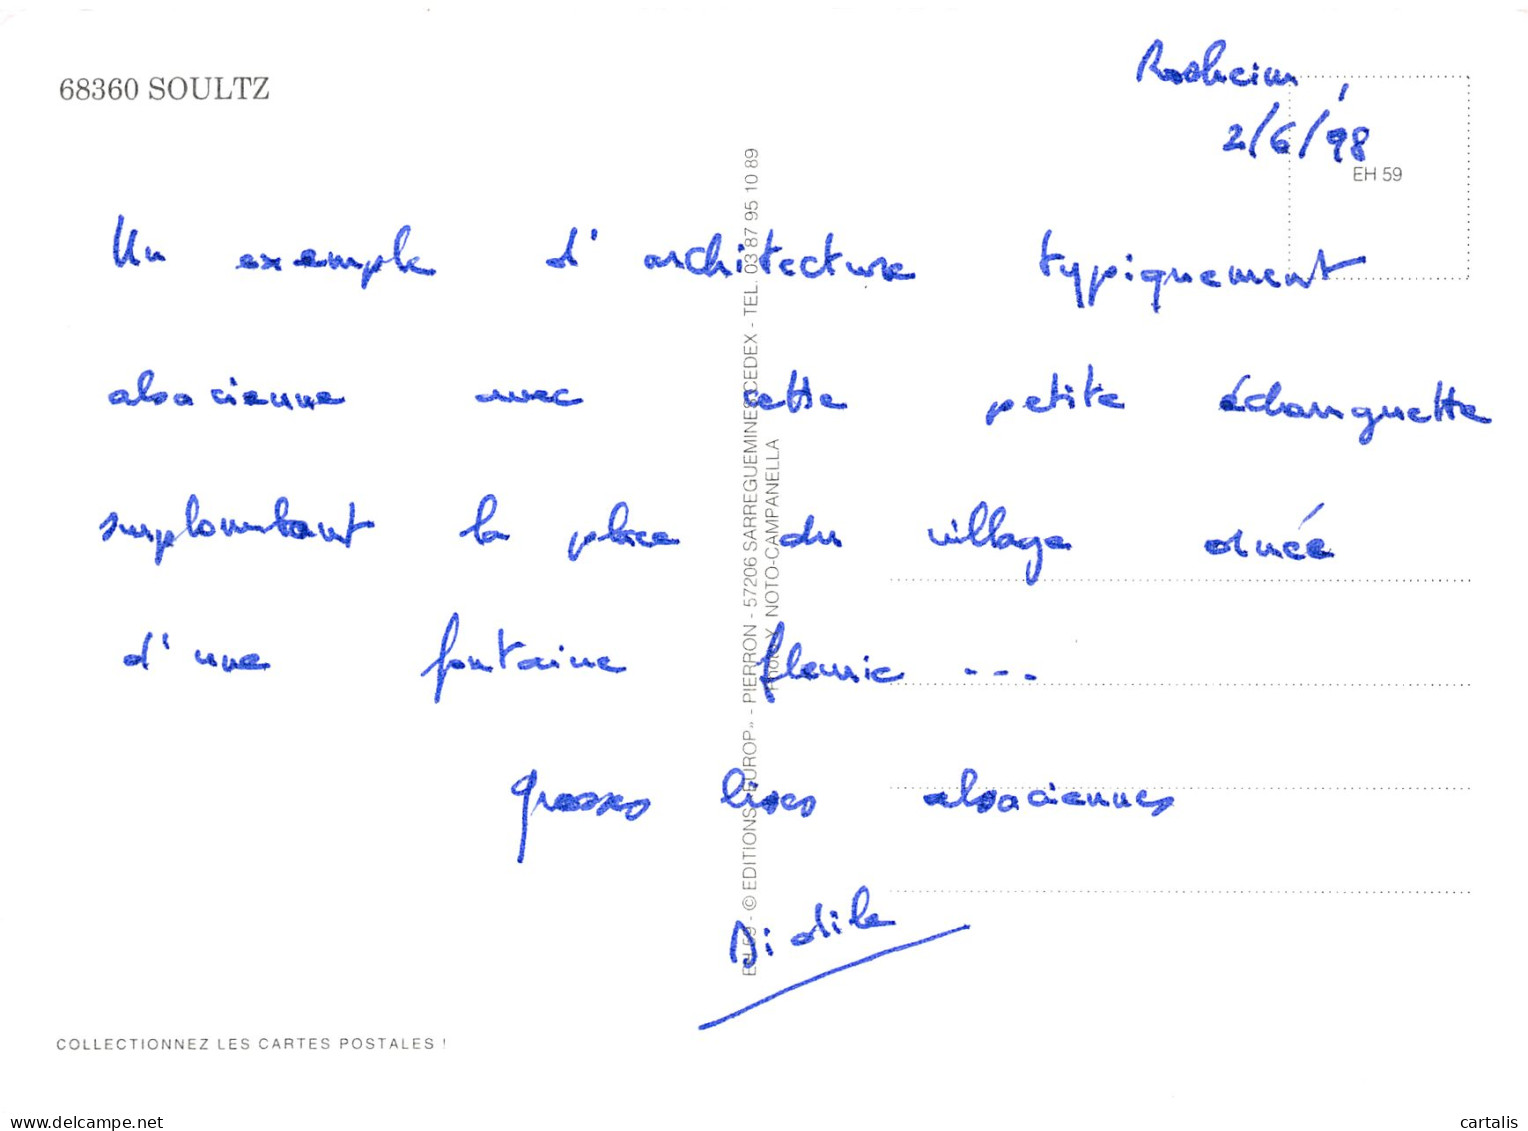 68360 SOULTZ
Rosheim,
2/6/98
EH 59
Un exemple d'architecture typiquement
alsacienne avec cette petite échauguette
surplombant la place du village ornée
d'une fontaine fleurie ...
grosses bises alsaciennes
EH 59 - © EDITIONS «EUROP» - PIERRON - 57206 SARREGUEMINES CEDEX - TEL. 03 87 95 10 89
Photo Y. NOTO-CAMPANELLA
COLLECTIONNEZ LES CARTES POSTALES !
delcampe.net
cartalis